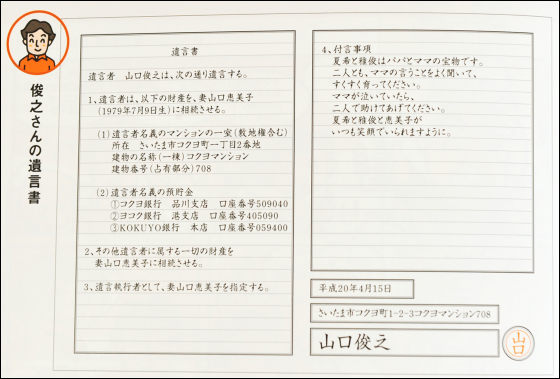 俊之さんの遺言書
遺言書
遺言者　山口俊之は、次の通り遺言する。
1、遺言者は、以下の財産を、妻山口恵美子
（1979年7月9日生）に相続させる。
（1）遺言者名義のマンションの一室（敷地権含む）
所在　さいたま市コクヨ町一丁目2番地
建物の名称（一棟）コクヨマンション
建物番号（占有部分）708
（2）遺言者名義の預貯金
①コクヨ銀行　品川支店　口座番号509040
②ヨコク銀行　港支店　口座番号405090
③KOKUYO銀行　本店　口座番号059400
2、その他遺言者に属する一切の財産を
妻山口恵美子に相続させる。
3、遺言執行者として、妻山口恵美子を指定する。
4、付言事項
夏希と雅俊はパパとママの宝物です。
二人とも、ママの言うことをよく聞いて、
すくすく育ってください。
ママが泣いていたら、
二人で助けてあげてください。
夏希と雅俊と恵美子が
いつも笑顔でいられますように。
平成20年4月15日
さいたま市コクヨ町1-2-3コクヨマンション708
山口俊之
山口